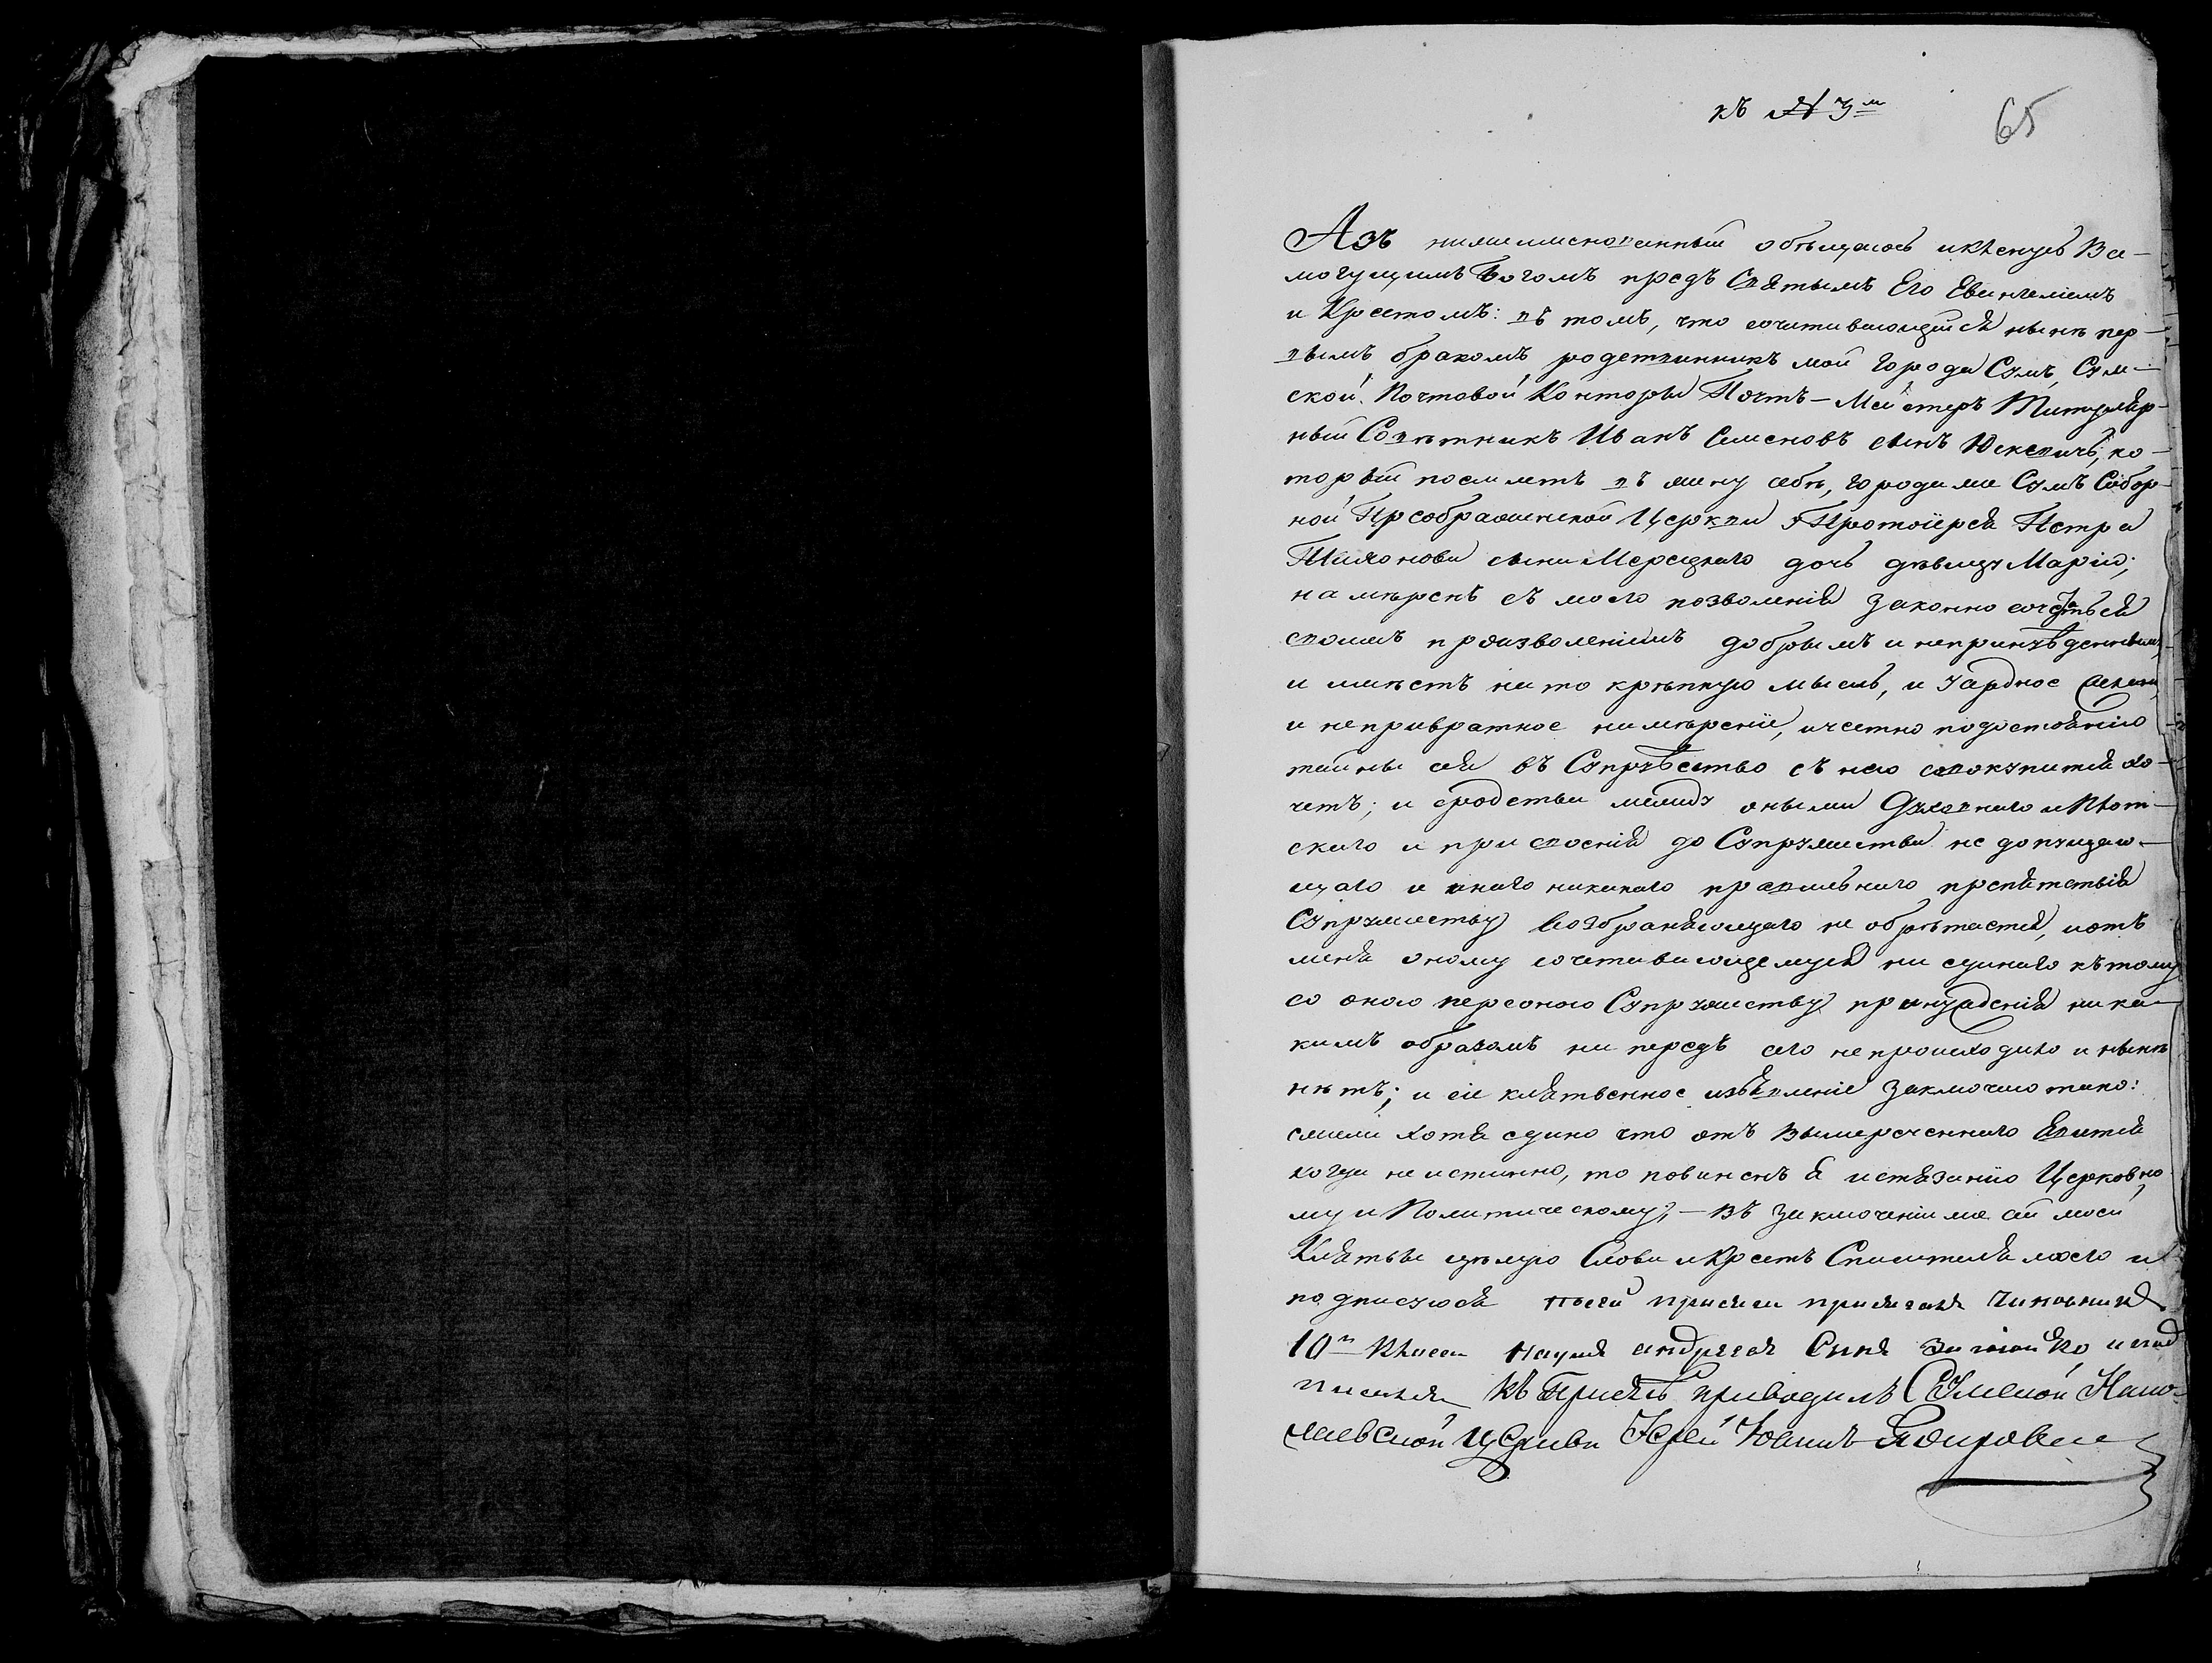 къ № 3м
65
Азъ нижеименованный обѣщаюсь и клѣнусь Все-
могущимъ Богомъ предъ Святымъ Его Евангелiемъ
и Крестомъ: въ томъ, что сочитивающiйся нынѣ пер-
вымъ бракомъ родственникъ мой города Сумъ, Сум-
ской Почтовой Конторы Почтъ-Мейстеръ Титуляр-
ный Совѣтникъ Иванъ Семеновъ сынъ ко-
торый поемлетъ въ жену себѣ, города же Сумъ Собор-
ной Преображенской Церкви Протоiерея Петра
сына дочь дѣвицу Марiю;
намѣренъ съ моего позволенiя законно сочетаться
своимъ произволенiемъ добрымъ и непринужденнымъ,
и имѣетъ на то крѣпкую мысль, и усердное желанiе
и непривратное намѣренiе, и честно подостоянiю
тайны сея въ Супружество съ нею совокупитися хо-
четъ; и сродства между оными Духовнаго и Плот-
скаго и присвоенiя до Супружества не допущаю-
щаго и инаго никакаго правильнаго препятствiя
Супружеству возбраняющаго не обрѣтается, и отъ
меня оному сочетавающемуся ни единаго къ тому
со оною персоною Супружеству принужденiя ника-
кимъ образомъ ни передъ сего не происходило и нынѣ
нѣтъ; и сiе клятвенное изъявленiе заключаю тако:
ежели хотя едино что отъ вышереченнаго явится
когда не истинно, то повиненъ я истязанiю Церковно-
му и Политическому; — Въ заключенiи же сей моей
Клятвы цѣлую Слова и Крестъ Спасителя моего и
подписуюся присяги присягалъ чиновникъ
10го класа Наумъ андреевъ Сынъ и под
писался Къ Присягѣ приводилъ Сумской Нико-
лаевской Церкви Iерей Iоаннъ